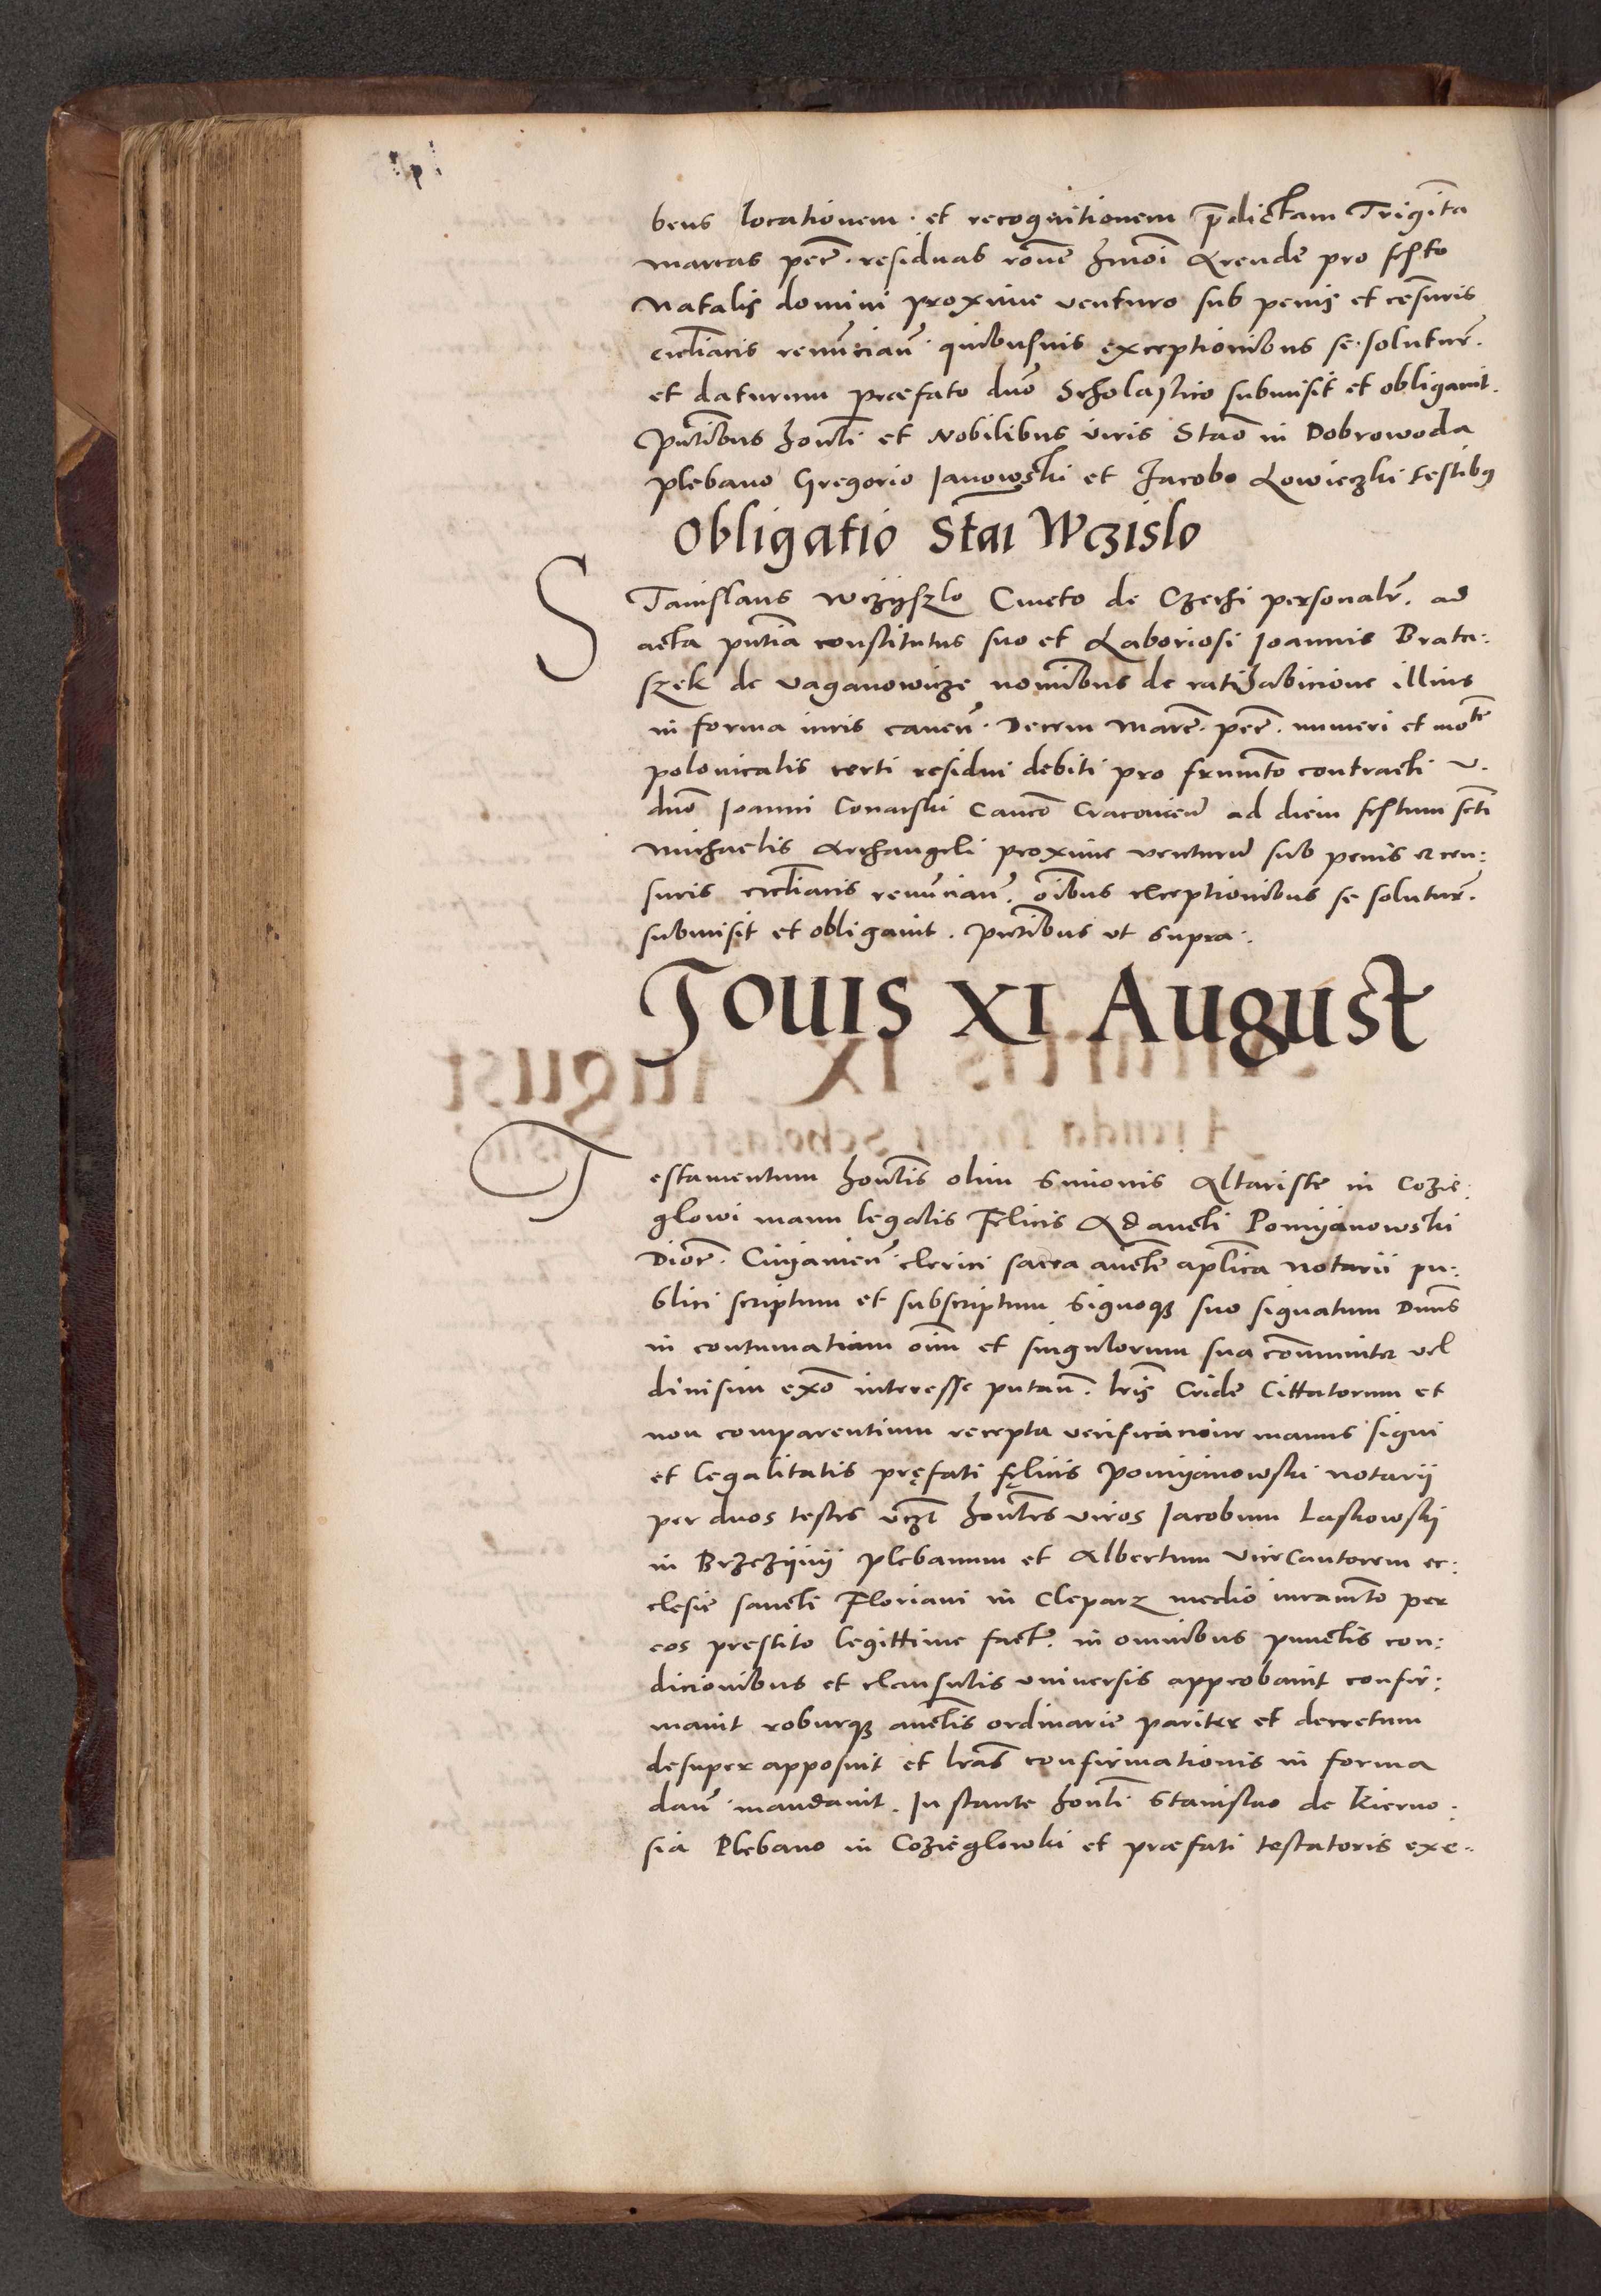 bens locationem · et recognitionem p̄dictam Trigīta
marcas pec̄ · residuas rōne hmōi Arende pro festo
Natalis domini proxime venturo sub penis et cēsuris
ecc̄liacis renūciaň · quibusuis exceptionibus se · soluturū ·
et daturum præfato dn̄o Scholastico submisit et obligauit ·
Pn̄tibus honl̄i et Nobilibus viris Stāo in Dobrowoda
plebano Gregorio Janowski et Jacobo Lowieczki testibus
Obligatio Stāi Wczislo
STanislaus Wczÿszlo Cmeto de Czechi personalr̄ . ad
acta pn̄tia constitutus suo et Laboriosi Joannis Brata:
szek de Vaganowicze nominibus de ratihabicione illius
in forma iuris caueň · Decem marc̄ · pec̄ . numeri et mōte
polonicalis certi residui debiti pro frumēto contracti V .
dn̄o Joanni Conarski Canco Cracouieň ad diem festum sc̄ti
Michaelis Archangeli proxime venturū sub penis et cen:
suris ecc̄liacis renūciaň . oībus exceptionibus se soluturū .
submisit et obligauit . Pn̄tibus vt supra .
Jouis XI August
Testamentum honl̄is olim Simonis Altariste in Cozie:
glowi manu legalis Felicis Adaucti Pomÿanowski
Dioc̄ . Cuyauieň clerici sacra auctē aplīca notarii pu:
blici scriptum et subscriptum signoqȝ suo signatum Dn̄us
in contumatiam oīm et singulorum sua cōmuniter vel
diuisim exn̄o interesse putaň . lr̄is Cride Cittatorum et
non comparentium recepta verificacione manus signi
et legalitatis pręfati fęlicis Pomÿanowski notarij
per duos testes vcȝt honl̄es viros Jacobum Laskowskj
in Brzezÿnÿ plebanum et Albertum Vicecantorem ec:
clesie sancti Floriani in Cleparz medio iuramēto per
eos prestito legittime factȝ . in omnibus punctis con:
dicionibus et clausulis vniuersis approbauit confir:
mauit roburqȝ auctīs ordinarie pariter et decretum
desuper apposuit et lr̄as confirmationis in forma
daň mandauit . Instante honl̄i Stanislao de Kierno:
sia Plebano in Cozieglowki et præfati testatoris exe: